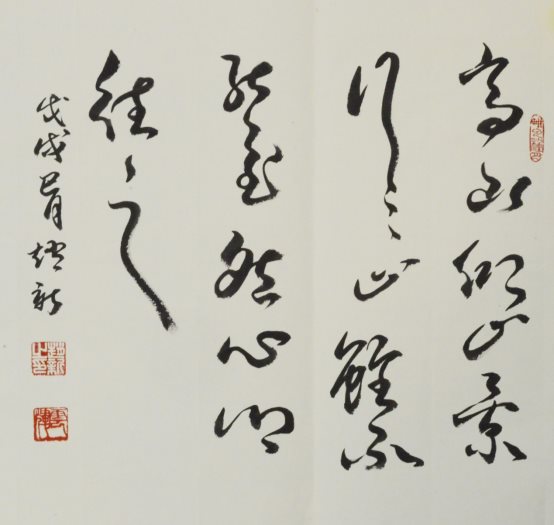 高山仰止景
行行止雖不
能至然心鄉
往之
戊戌冒趙新